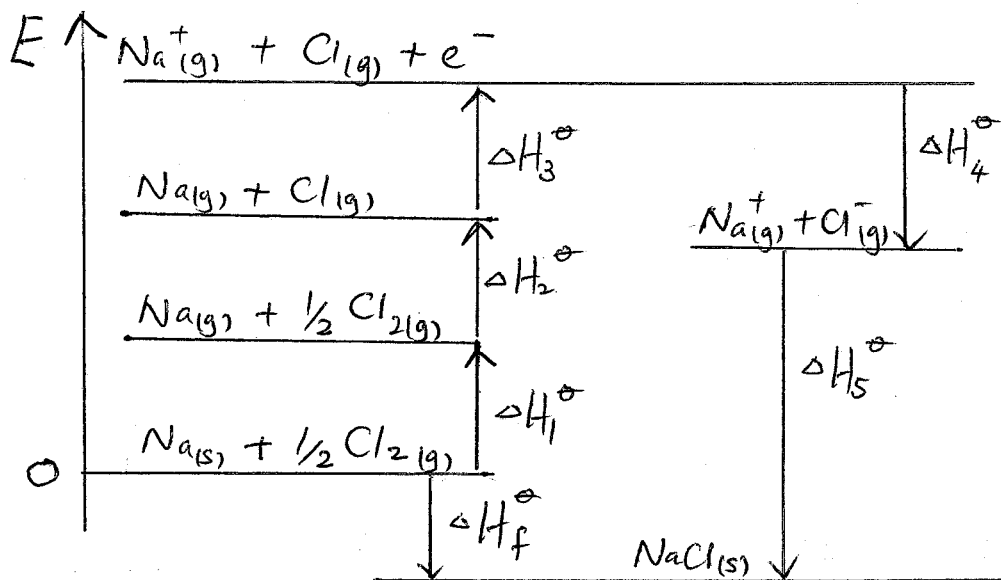 E Na⁺(g) + Cl(g) + e⁻
ΔH₃⊖
ΔH₄⊖
Na(g) + Cl(g)
Na⁺(g) + Cl⁻(g)
ΔH₂⊖
Na(g) + 1/2 Cl₂(g)
ΔH₅⊖
ΔH₁⊖
Na(s) + 1/2 Cl₂(g)
0
ΔHf⊖
NaCl(s)